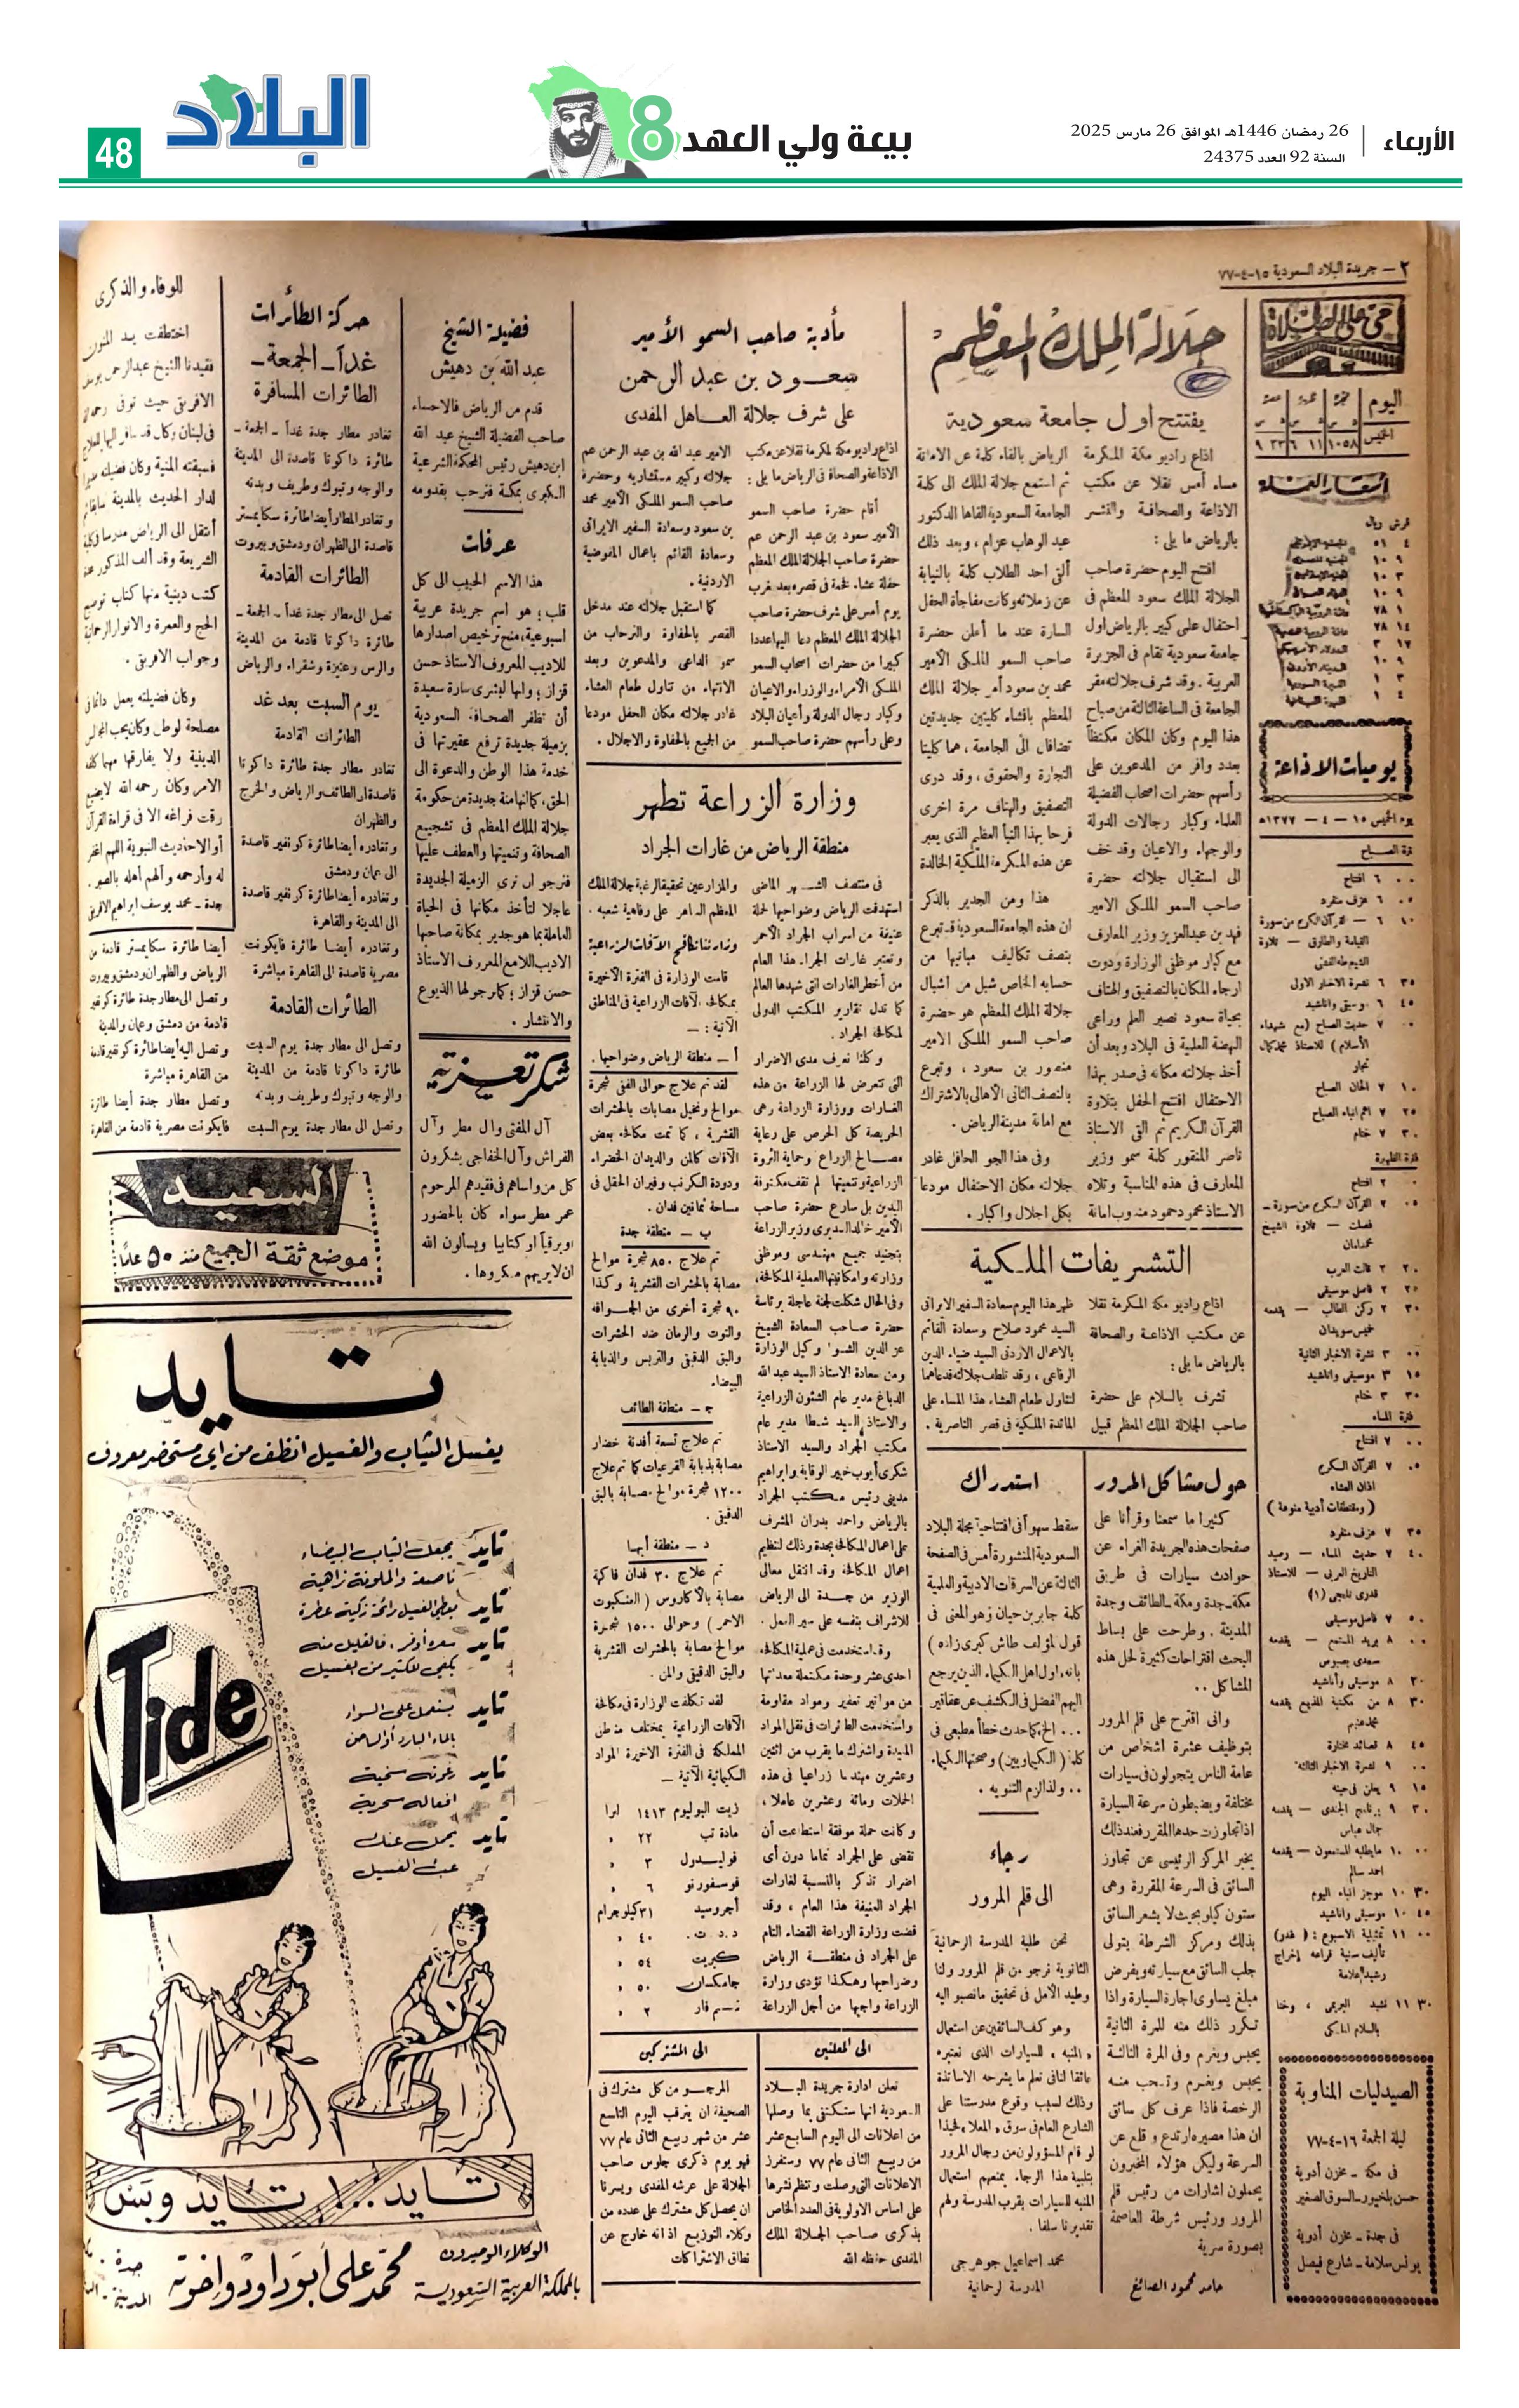 الأربعاء
26 رمضان 1446هـ الموافق 26 مارس 2025
السنة 92 العدد 24375
بيعة ولي العهد 8
البلاد
48
٢ - جريدة البلاد السعودية ١٥-٤-٧٧
حي على الصلاة
اليوم
الخميس
أسعار العملة
قرش ريال
يوميات الاذاعة
يوم الخميس ١٥ - ٤ - ١٣٧٧هـ
فترة الصباح
٠٠ ٦ افتتاح
٠٥ ٦ عزف منفرد
١٠ ٦ - القرآن الكريم من سورة
القيامة والطارق - تلاوة
الشيخ طه الفشنى
٣٥ ٦ نشرة الاخبار الاولى
٤٥ ٦ موسيقى واناشيد
٠ ٧ حديث الصباح (مع شهداء
الأسلام) للاستاذ محمد كمال
نجار
١٠ ٧ الحان الصباح
٢٥ ٧ اهم انباء الصباح
٣٠ ٧ ختام
فترة الظهيرة
٠ ٢ افتتاح
٠٥ ٢ القرآن الكريم من سورة -
فصلت - تلاوة الشيخ
محمد امان
٢٠ ٢ قالت العرب
٢٥ ٢ فاصل موسيقى
٣٠ ٢ ركن الطالب - يقدمه
خميس سويدان
٠٠ ٣ نشرة الاخبار الثانية
١٥ ٣ موسيقى واناشيد
٣٠ ٣ ختام
فترة المساء
٠٠ ٧ افتتاح
٠٥ ٧ القرآن الكريم
اذان العشاء
(ومقتطفات أدبية منوعة)
٣٥ ٧ عزف منفرد
٤٠ ٧ حديث المساء - رصيد
التاريخ العربى - للاستاذ
قدرى قلعجى (١)
٥٠ ٧ فاصل موسيقى
٠٠ ٨ بريد المستمع - يقدمه
سعدى بصبوص
٢٠ ٨ موسيقى وأناشيد
٣٠ ٨ من مكتبة المنهج يقدمه
محمد غنيم
٤٥ ٨ قصائد مختارة
٠٠ ٩ نشرة الاخبار الثالثة
٣٠ ٩ برنامج الجندى - يقدمه
جمال عباس
٠٠ ١٠ مايطلبه المستمعون - يقدمه
احمد سالم
٣٠ ١٠ موجز انباء اليوم
٤٥ ١٠ موسيقى واناشيد
٠٠ ١١ تمثيلية الاسبوع : (غدر)
تأليف سنية قراعه إخراج
رشيد علامة
٣٠ ١١ نشيد الجريمى ، وختا
بالسلام الملكى
الصيدليات المناوبة
ليلة الجمعة ١٦-٤-٧٧
فى مكة - مخزن أدوية
حسن بلخيور - السوق الصغير
فى جدة - مخزن أدوية
يونس سلامة - شارع فيصل
جلالة الملك المعظم
يفتتح اول جامعة سعودية
اذاع راديو مكة المكرمة
مساء أمس نقلا عن مكتب
الاذاعة والصحافة والنشر
بالرياض ما يلى :
افتتح اليوم حضرة صاحب
الجلالة الملك سعود المعظم فى
احتفال على كبير بالرياض اول
جامعة سعودية تقام فى الجزيرة
العربية . وقد شرف جلالته مقر
الجامعة فى الساعة الثالثة من صباح
هذا اليوم وكان المكان مكتظاً
بعدد وافر من المدعوين على
رأسهم حضرات اصحاب الفضيلة
العلماء وكبار رجالات الدولة
والوجهاء والاعيان وقد خف
الى استقبال جلالته حضرة
صاحب السمو الملكى الامير
فهد بن عبدالعزيز وزير المعارف
مع كبار موظفى الوزارة ودوت
ارجاء المكان بالتصفيق والهتاف
بحياة سعود نصير العلم وراعى
النهضة العلمية فى البلاد وبعد أن
أخذ جلالته مكانه فى صدر بهذا
الاحتفال افتتح الحفل بتلاوة
القرآن الكريم ثم القى الاستاذ
ناصر المنقور كلمة سمو وزير
المعارف فى هذه المناسبة وتلاه
الاستاذ محمود حمود مندوب امانة
الرياض بالقاء كلمة عن الامانة
ثم استمع جلالة الملك الى كلمة
الجامعة السعودية القاها الدكتور
عبد الوهاب عزام ، وبعد ذلك
ألقى احد الطلاب كلمة بالنيابة
عن زملائه وكانت مفاجأة الحفل
السارة عند ما أعلن حضرة
صاحب السمو الملكى الأمير
محمد بن سعود أمر جلالة الملك
المعظم بانشاء كليتين جديدتين
تضافان الى الجامعة ، هما كليتا
التجارة والحقوق ، وقد دوى
التصفيق والهتاف مرة اخرى
فرحا بهذا النبأ العظيم الذى يعبر
عن هذه المكرمة الملكية الخالدة
هذا ومن الجدير بالذكر
ان هذه الجامعة السعودية قد تبرع
بنصف تكاليف مبانيها من
حسابه الخاص شبل من أشبال
جلالة الملك المعظم هو حضرة
صاحب السمو الملكى الامير
منصور بن سعود ، وتبرع
بالنصف الثانى الاهالى بالاشتراك
مع امانة مدينة الرياض .
وفى هذا الجو الحافل غادر
جلالته مكان الاحتفال مودعا
بكل اجلال واكبار .
التشريفات الملكية
اذاع راديو مكة المكرمة نقلا
عن مكتب الاذاعة والصحافة
بالرياض ما يلى :
تشرف بالسلام على حضرة
صاحب الجلالة الملك المعظم قبيل
ظهر هذا اليوم سعادة السفير الايرانى
السيد محمود صلاح وسعادة القائم
بالاعمال الاردنى السيد ضياء الدين
الرفاعى ، وقد تلطف جلالته فدعاهما
لتناول طعام العشاء هذا المساء على
المائدة الملكية فى قصر الناصرية .
حول مشاكل المرور
كثيرا ما سمعنا وقرأنا على
صفحات هذه الجريدة الغراء عن
حوادث سيارات فى طريق
مكة - جدة ومكة - الطائف وجدة
المدينة . وطرحت على بساط
البحث اقتراحات كثيرة لحل هذه
المشاكل ..
وانى اقترح على قلم المرور
بتوظيف عشرة اشخاص من
عامة الناس يتجولون فى سيارات
مختلفة ويضبطون سرعة السيارة
اذا تجاوزت حدها المقرر فعند ذلك
يخبر المركز الرئيسى عن تجاوز
السائق فى السرعة المقررة وهى
ستون كيلو بحيث لا يشعر السائق
بذلك ومركز الشرطة يتولى
جلب السائق مع سيارته ويفرض
مبلغ يساوى اجارة السيارة واذا
تكرر ذلك منه للمرة الثانية
يحبس ويغرم وفى المرة الثالثة
يحبس ويغرم وتسحب منه
الرخصة فاذا عرف كل سائق
ان هذا مصيره ارتدع و قلع عن
السرعة وليكن هؤلاء المخبرون
يحملون اشارات من رئيس قلم
المرور ورئيس شرطة العاصمة
بصورة سرية
حامد محمود الصائغ
استدراك
سقط سهوا فى افتتاحية مجلة البلاد
السعودية المنشورة أمس فى الصفحة
الثالثة عن السرقات الادبية والعلمية
كلمة جابر بن حيان زهو المعنى فى
قول المؤلف طاش كبرى زاده)
بانه اول اهل الكيمياء الذين يرجع
اليهم الفضل فى الكشف عن عقاقير
... الخ كما حدث خطأ مطبعى فى
كلمة (الكيماويين) وصحتها الكيمياء
.. ولذا لزم التنويه .
رجاء
الى قلم المرور
نحن طلبة المدرسة الرحمانية
الثانوية نرجو من قلم المرور ولنا
وطيد الأمل فى تحقيق مانصبو اليه
وهو كف السائقين عن استعمال
المنبه للسيارات الذى نعتبره
عائقا لنا فى تعلم ما يشرحه الاساتذة
وذلك لسبب وقوع مدرستنا على
الشارع العام فى سوق المعلا ، فحبذا
لو قام المسؤولون من رجال المرور
بتلبية هذا الرجاء بمنعهم استعمال
المنبه للسيارات بقرب المدرسة ولهم
تقديرنا سلفا .
محمد اسماعيل جوهرجى
المدرسة الرحمانية
مأدبة صاحب السمو الأمير
سعود بن عبد الرحمن
على شرف جلالة العاهل المفدى
اذاع راديو مكة المكرمة نقلا عن مكتب
الاذاعة والصحافة فى الرياض ما يلى :
أقام حضرة صاحب السمو
الأمير سعود بن عبد الرحمن عم
حضرة صاحب الجلالة الملك المعظم
حفلة عشاء فخمة فى قصره بعد غرب
يوم أمس على شرف حضرة صاحب
الجلالة الملك المعظم دعا اليها عددا
كبيرا من حضرات اصحاب السمو
الملكى الأمراء والوزراء والاعيان
وكبار رجال الدولة وأعيان البلاد
وعلى رأسهم حضرة صاحب السمو
الامير عبد الله بن عبد الرحمن عم
جلالته وكبير مستشاريه وحضرة
صاحب السمو الملكى الأمير محمد
بن سعود وسعادة السفير الايرانى
وسعادة القائم باعمال المفوضية
الاردنية .
كما استقبل جلالته عند مدخل
القصر بالحفاوة والترحاب من
سمو الداعى والمدعوين وبعد
الانتهاء من تناول طعام العشاء
غادر جلالته مكان الحفل مودعا
من الجميع بالحفاوة والاجلال .
وزارة الزراعة تطهر
منطقة الرياض من غارات الجراد
فى منتصف الشهر الماضى
استهدفت الرياض وضواحيها لحملة
عنيفة من اسراب الجراد الأحمر
وتعتبر غارات الجراد هذا العام
من أخطر الغارات التى شهدها العالم
كما تدل تقارير المكتب الدولى
لمكافحة الجراد.
وكلنا نعرف مدى الاضرار
التى تتعرض لها الزراعة من هذه
الغارات ووزارة الزراعة وهى
الحريصة كل الحرص على رعاية
مصالح الزراع وحماية الثروة
الزراعية وتنميتها لم تقف مكتوفة
اليدين بل سارع حضرة صاحب
الأمير خالد السديرى وزير الزراعة
بتجنيد جميع مهندسى وموظفى
وزارته وامكانيتها العملية المكافحة،
وفى الحال شكلت لجنة عاجلة برئاسة
حضرة صاحب السعادة الشيخ
عز الدين الشوا وكيل الوزارة
ومن سعادة الاستاذ السيد عبد الله
الدباغ مدير عام الشئون الزراعية
والاستاذ السيد شطا مدير عام
مكتب الجراد والسيد الاستاذ
شكرى أيوب خبير الوقاية وابراهيم
مدينى رئيس مكتب الجراد
بالرياض واحمد بدران المشرف
على اعمال المكافحة بجدة وذلك لتنظيم
اعمال المكافحة وقد انتقل معالى
الوزير من جدة الى الرياض
للاشراف بنفسه على سير العمل .
وقد استخدمت فى عملية المكافحة
احدى عشر وحدة مكتملة معداتها
من مواتير تعفير ومواد مقاومة
واستخدمت الطائرات فى نقل المواد
المبيدة واشترك ما يقرب من اثنين
وعشرين مهندسا زراعيا فى هذه
الحملات ومائة وعشرين عاملا ،
وكانت حملة موفقة استطاعت أن
تقضى على الجراد تماما دون أى
اضرار تذكر بالنسبة لغارات
الجراد العنيفة هذا العام ، وقد
قضت وزارة الزراعة القضاء التام
على الجراد فى منطقة الرياض
وضواحيها وهكذا تؤدى وزارة
الزراعة واجبها من أجل الزراعة
والمزارعين تحقيقا لرغبة جلالة الملك
المعظم الساهر على رفاهية شعبه .
وزارتنا تكافح الآفات الزراعية
قامت الوزارة فى الفترة الأخيرة
بمكافحة الآفات الزراعية فى المناطق
الآتية : -
أ - منطقة الرياض وضواحيها .
لقد تم علاج حوالى الفى شجرة
موالح ونخيل مصابات بالحشرات
القشرية ، كما تمت مكافحة بعض
الآفات كالمن والديدان الخضراء
ودودة الكرنب وفيران الحقل فى
مساحة ثمانين فدان .
ب - منطقة جدة
تم علاج ٨٥٠ شجرة موالح
مصابة بالحشرات القشرية وكذا
٩٠ شجرة أخرى من الجوافه
والتوت والرمان ضد الحشرات
والبق الدقيقى والتربس والذبابة
البيضاء.
جـ - منطقة الطائف
تم علاج تسعة أفدنة خضار
مصابة بذبابة القرعيات كما تم علاج
١٢٠٠ شجرة موالح مصابة بالبق
الدقيقى .
د - منطقة أبها
تم علاج ٣٠ فدان فاكهة
مصابة بالاكاروس (العنكبوت
الاحمر) وحوالى ١٥٠٠ شجرة
موالح مصابة بالحشرات القشرية
والبق الدقيقى والمن .
لقد تكلفت الوزارة فى مكافحة
الآفات الزراعية بمختلف مناطق
المملكة فى الفترة الاخيرة المواد
الكيمائية الآتية -
زيت البوليوم ١٤١٣ لترا
مادة تب ٢٢ »
فوليدول ٣ »
فوسفورنو ٦ »
أجروسيد ٣١ كيلوجرام
د.د.ت. ٤٠ »
كبريت ٥٤ »
جامكسان ٥٠ »
سم فار ٢ »
الى المعلنين
تعلن ادارة جريدة البلاد
السعودية انها ستكتفى بما وصلها
من اعلانات الى اليوم السابع عشر
من ربيع الثانى عام ٧٧ وستفرز
الاعلانات التى وصلت وتنظم نشرها
على اساس الاولوية فى العدد الخاص
بذكرى صاحب الجلالة الملك
المفدى حفظه الله
الى المشتركين
المرجو من كل مشترك فى
الصحيفة ان يترقب اليوم التاسع
عشر من شهر ربيع الثانى عام ٧٧
فهو يوم ذكرى جلوس صاحب
الجلالة على عرشه المفدى ويسرنا
ان يحصل كل مشترك على عدده من
وكلاء التوزيع اذ انه خارج عن
نطاق الاشتراكات
فضيلة الشيخ
عبد الله بن دهيش
قدم من الرياض فالاحساء
صاحب الفضيلة الشيخ عبد الله
ابن دهيش رئيس المحكمة الشرعية
الكبرى بمكة فنرحب بقدومه
عرفات
هذا الاسم الحبيب الى كل
قلب ؛ هو اسم جريدة عربية
اسبوعية، منح ترخيص اصدارها
للاديب المعروف الاستاذ حسن
قزاز ؛ وانها لبشرى سارة سعيدة
أن تظفر الصحافة السعودية
بزميلة جديدة ترفع عقيرتها فى
خدمة هذا الوطن والدعوة الى
الحق، كما انها منة جديدة من حكومة
جلالة الملك المعظم فى تشجيع
الصحافة وتنميتها والعطف عليها
فنرجو ان نرى الزميلة الجديدة
عاجلا لتأخذ مكانها فى الحياة
العاملة بما هو جدير بمكانة صاحبها
الاديب اللامع المعروف الاستاذ
حسن قزاز ؛ كما نرجو لها الذيوع
والانتشار .
شكر تعزية
آل المفتى وال مطر وآل
الفراش وآل الخفاجى يشكرون
كل من واساهم فى فقيدهم المرحوم
عمر مطر سواء كان بالحضور
او برقيا او كتابيا ويسألون الله
ان لايريهم مكروها .
حركة الطائرات
غداً - الجمعة -
الطائرات المسافرة
تغادر مطار جدة غداً - الجمعة -
طائرة داكوتا قاصدة الى المدينة
والوجه وتبوك وطريف وبدنه
وتغادر المطار أيضا طائرة سكايمستر
قاصدة الى الظهران ودمشق وبيروت
الطائرات القادمة
تصل الى مطار جدة غداً - الجمعة -
طائرة داكوتا قادمة من المدينة
والرس وعنيزة وشقراء والرياض
يوم السبت بعد غد
الطائرات القادمة
تغادر مطار جدة طائرة داكوتا
قاصدة الى الطائف والرياض والخرج
والظهران
وتغادره أيضا طائرة كونفير قاصدة
الى عمان ودمشق
وتغادره أيضا طائرة كونفير قاصدة
الى المدينة والقاهرة
وتغادره أيضا طائرة فايكونت
مصرية قاصدة الى القاهرة مباشرة
الطائرات القادمة
وتصل الى مطار جدة يوم السبت
طائرة داكوتا قادمة من المدينة
والوجه وتبوك وطريف وبدنه
وتصل الى مطار جدة يوم السبت
للوفاء والذكرى
اختطفت يد المنون
فقيدنا الشيخ عبدالرحمن يوسف
الافريقى حيث توفى رحمه الله
فى لبنان وكان قد سافر اليها للعلاج
فسبقته المنية وكان فضيلته مديرا
لدار الحديث بالمدينة سابقا ثم
أنتقل الى الرياض مدرسا فى كلية
الشريعة وقد ألف المذكور عدة
كتب دينية منها كتاب توضيح
الحج والعمرة والانوار الرحمانية
وجواب الافريقى .
وكان فضيلته يعمل دائما فى
مصلحة لوطن وكان يحب المجالس
الدينية ولا يفارقها مهما كلفه
الامر وكان رحمه الله لايضيع
وقت فراغه الا فى قراءة القرآن
أو الاحاديث النبوية اللهم اغفر
له وأرحمه وألهم أهله بالصبر .
جدة - محمد يوسف ابراهيم الافريقى
أيضا طائرة سكايمستر قادمة من
الرياض والظهران ودمشق وبيروت
وتصل الى مطار جدة طائرة كونفير
قادمة من دمشق وعمان والمدينة
وتصل اليه أيضا طائرة كونفير قادمة
من القاهرة مباشرة
وتصل مطار جدة أيضا طائرة
فايكونت مصرية قادمة من القاهرة
السعيد
موضع ثقة الجميع منذ ٥٠ عامًا
تايد
يغسل الثياب والغسيل انظف من اي مستحضر معروف
تايد يجعل الثياب البيضاء
ناصعة والملونة زاهية
تايد يعطي الغسيل رائحة زكية عطرة
تايد سعره أوفر، فالقليل منه
يكفي للكثير من الغسيل
تايد يستعمل على السواء
بالماء البارد أو الساخن
تايد رغوته سخية
افعاله سحرية
تايد يحمل عنك
عبء الغسيل
Tide
تايد ...! تايد وبس
الوكلاء الوحيدون
بالمملكة العربية السعودية
محمد علي أبو داود وإخوته
جدة - مكة
المدينة -